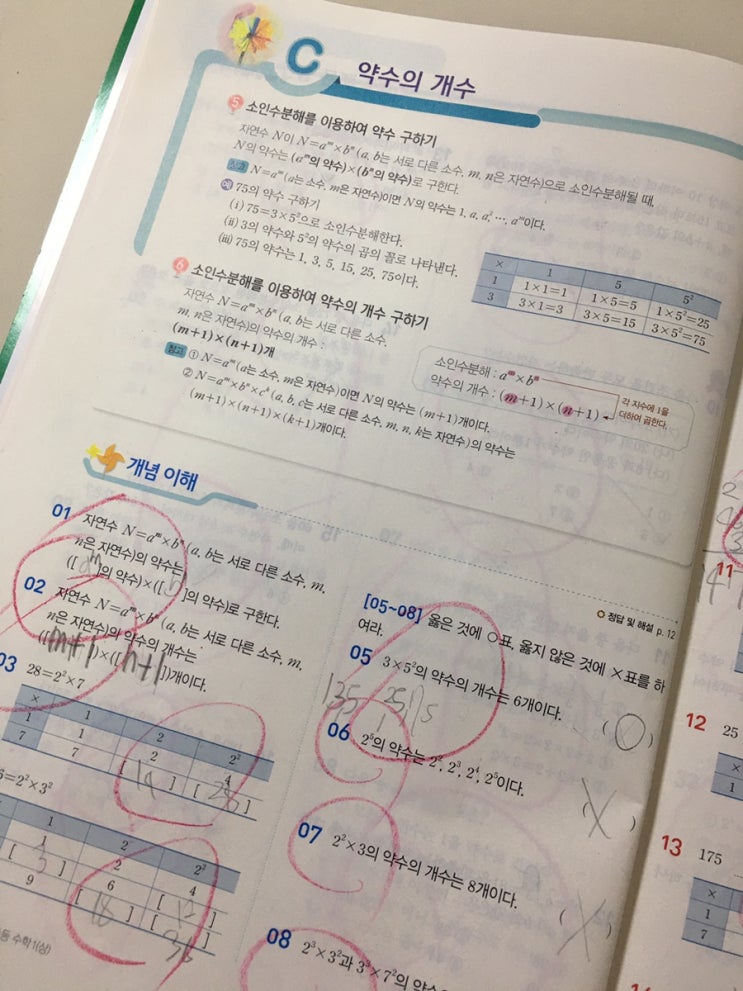 C 약수의 개수
5 소인수분해를 이용하여 약수 구하기
자연수 N이 N=aᵐ×bⁿ(a, b는 서로 다른 소수, m, n은 자연수)으로 소인수분해될 때,
N의 약수는 (aᵐ의 약수)×(bⁿ의 약수)로 구한다.
참고 N=aᵐ(a는 소수, m은 자연수)이면 N의 약수는 1, a, a², …, aᵐ이다.
예 75의 약수 구하기
(ⅰ) 75=3×5²으로 소인수분해한다.
(ⅱ) 3의 약수와 5²의 약수의 곱의 꼴로 나타낸다.
(ⅲ) 75의 약수는 1, 3, 5, 15, 25, 75이다.
× 1 5 5²
1 1×1=1 1×5=5 1×5²=25
3 3×1=3 3×5=15 3×5²=75
6 소인수분해를 이용하여 약수의 개수 구하기
자연수 N=aᵐ×bⁿ(a, b는 서로 다른 소수,
m, n은 자연수)의 약수의 개수 :
(m+1)×(n+1)개
소인수분해 : aᵐ×bⁿ
약수의 개수 : (m+1)×(n+1)
각 지수에 1을
더하여 곱한다.
참고 ① N=aᵐ(a는 소수, m은 자연수)이면 N의 약수는 (m+1)개이다.
② N=aᵐ×bⁿ×cᵏ(a, b, c는 서로 다른 소수, m, n, k는 자연수)의 약수는
(m+1)×(n+1)×(k+1)개이다.
개념 이해
01 자연수 N=aᵐ×bⁿ(a, b는 서로 다른 소수, m,
n은 자연수)의 약수는
([ aᵐ ]의 약수)×([ ]의 약수)로 구한다.
02 자연수 N=aᵐ×bⁿ(a, b는 서로 다른 소수, m,
n은 자연수)의 약수의 개수는
([m+1]×[n+1])개이다.
03 28=2²×7
× 1 2 2²
1 1 2 4
7 7 [ 14 ] [ 28 ]
6=2²×3²
1 2 2²
1 2 4
[ 3 ] 6 [ 12 ]
9 [ 18 ] [ 36 ]
등 수학 1(상)
정답 및 해설 p. 12
[05~08] 옳은 것에 ○표, 옳지 않은 것에 ×표를 하
여라.
05 3×5²의 약수의 개수는 6개이다. ( O )
135
06 2⁵의 약수는 2², 2³, 2⁴, 2⁵이다. ( X )
07 2²×3의 약수의 개수는 8개이다. ( X )
08 2³×3²과 3³×7²의 약수의
11
12 25
×
1
13 175
×
1
7